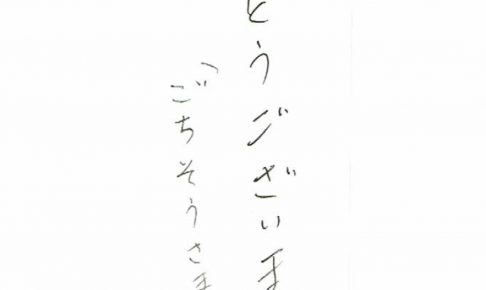 とうございま
「ごちそうさま